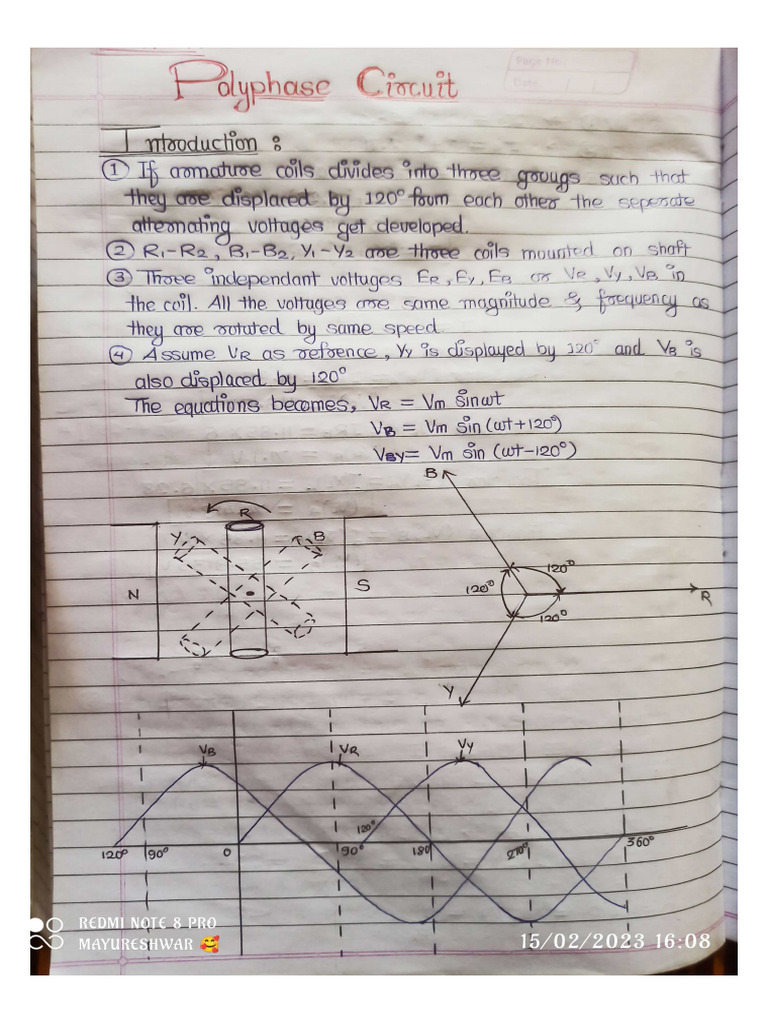 Page No.
Date
Polyphase Circuit
Introduction :
① If armature coils divides into three groups such that
they are displaced by 120° from each other the seperate
alternating voltages get developed.
② R1-R2, B1-B2, Y1-Y2 are three coils mounted on shaft
③ Three independant voltages ER, EY, EB or VR, VY, VB in
the coil. All the voltages are same magnitude & frequency as
they are rotuted by same speed.
④ Assume VR as refrence, Vy is displayed by 120° and VB is
also displaced by 120°
The equations becomes, VR = Vm sinωt
VB = Vm sin (ωt+120°)
VBY= Vm sin (ωt-120°)
B
R
Y
B
120°
N
S
120°
R
120°
Y
VB
VR
Vy
120°
120°
90°
0
90°
180
270°
360°
REDMI NOTE 8 PRO
MAYURESHWAR 🥰
15/02/2023 16:08